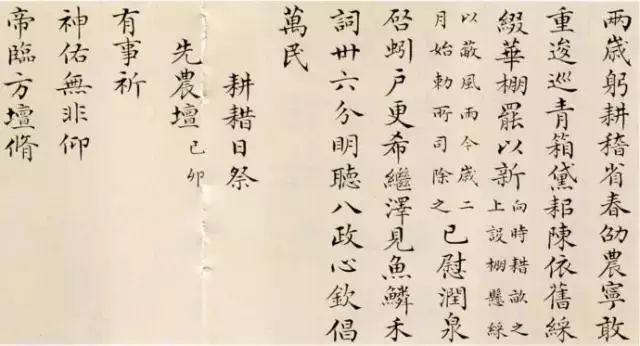 兩歲躬耕稽省春劭農寧敢
重逡巡青箱黛耜陳依舊綵
綴華棚罷以新向時耤畝之
上設棚懸綵
以蔽風雨今歲二
月始勅所司除之已慰潤泉
启蚓户更希繼澤見魚鱗禾
詞卅六分明聽八政心欽倡
萬民
耕耤日祭
先農壇己卯
有事祈
神佑無非仰
帝臨方壇脩